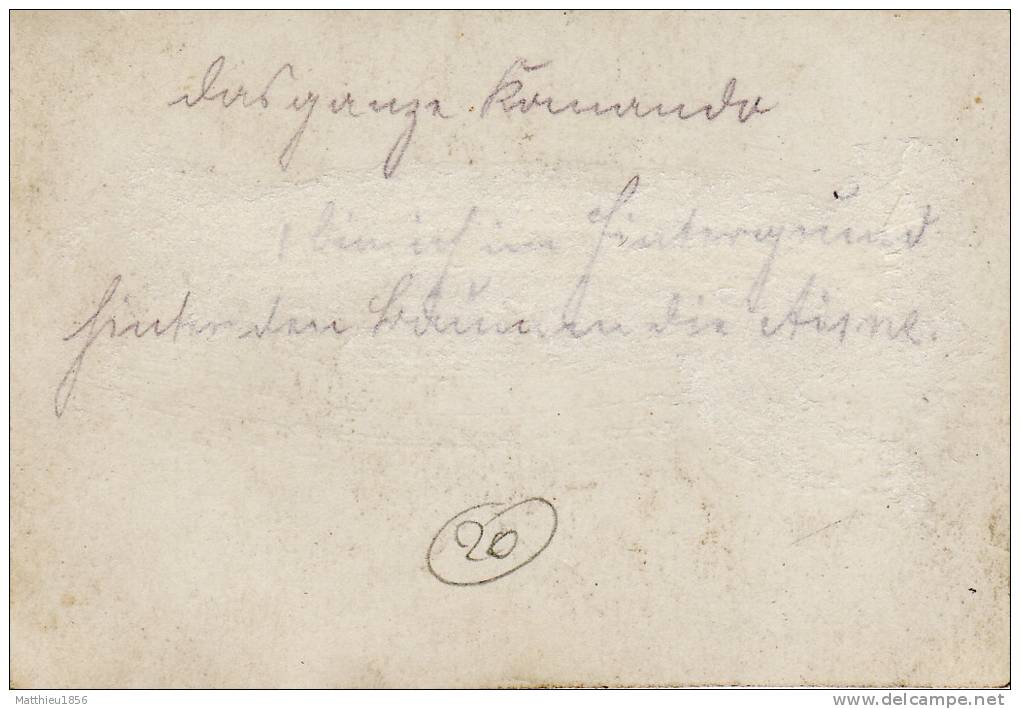 das ganze Komando
1 bin ich im Hintergrund
hinter den Bäumen die Aisne.
20
Matthieu1856
www.delcampe.net